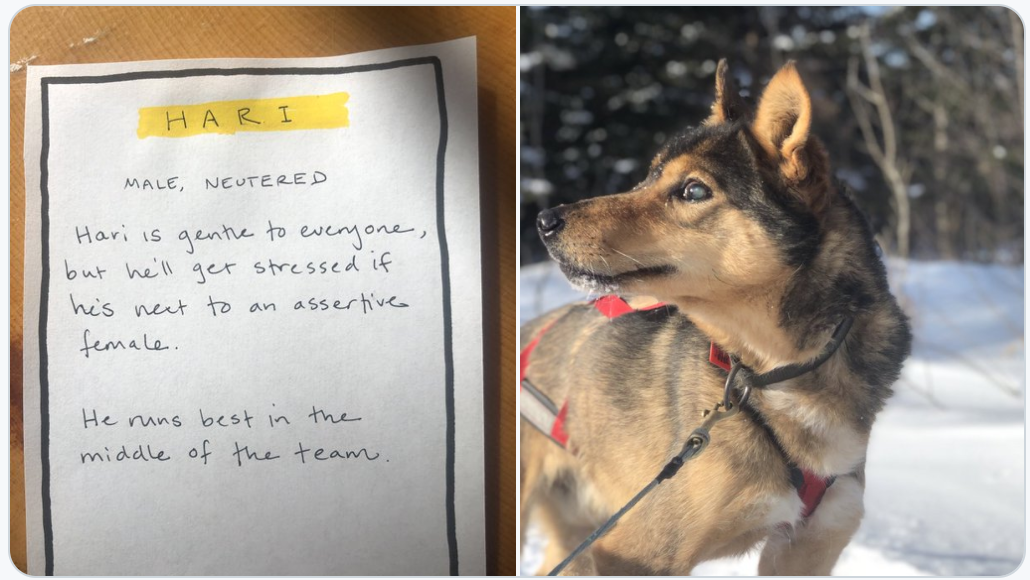 HARI
MALE, NEUTERED
Hari is gentle to everyone,
but he'll get stressed if
he's next to an assertive
female.
He runs best in the
middle of the team.